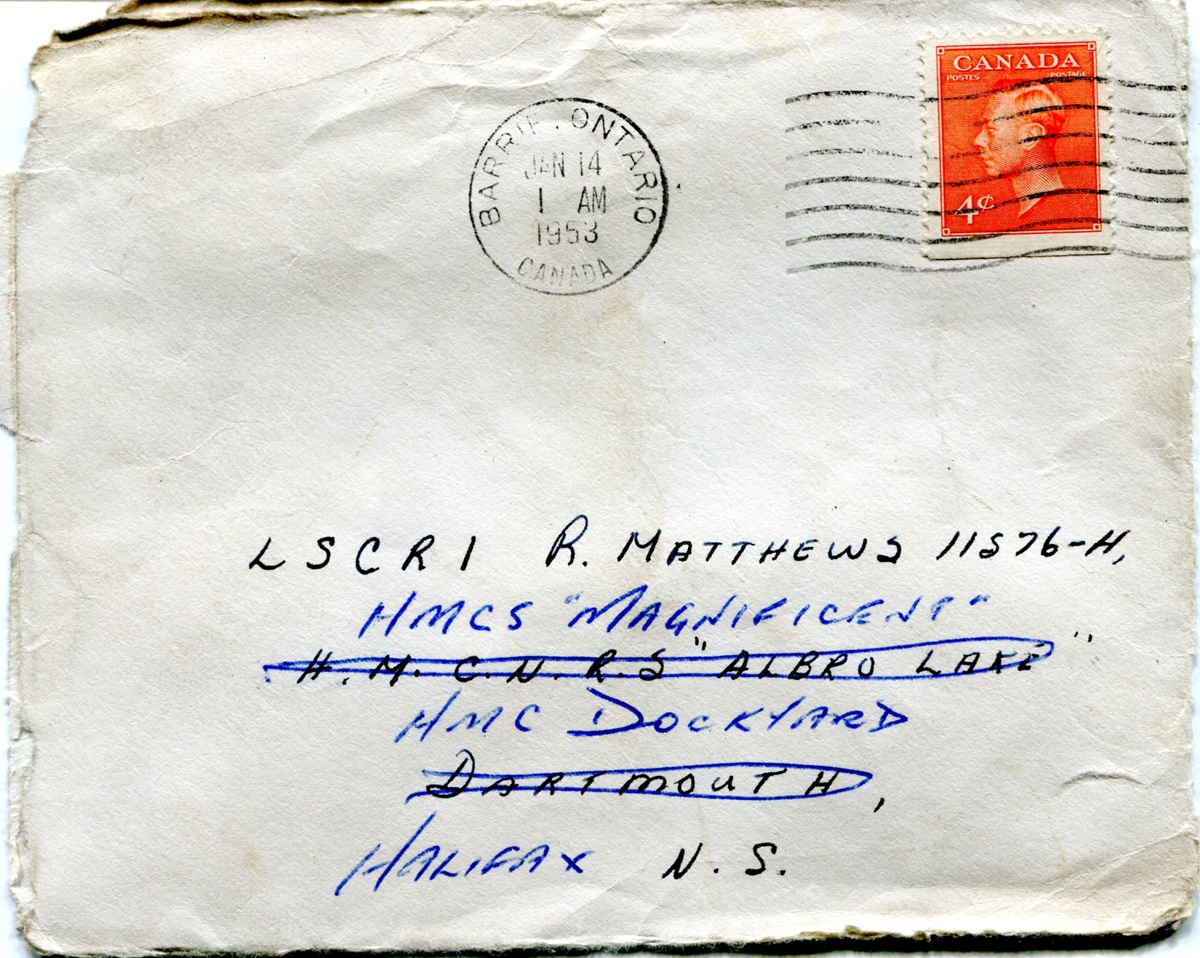 CANADA
POSTES POSTAGE
4¢
BARRIE. ONTARIO
JAN 14
1 AM
1953
CANADA
LSCR1 R. MATTHEWS 11576-H,
HMCS "MAGNIFICENT"
H.M.C.N.R.S "ALBRO LAKE"
HMC DOCKYARD
DARTMOUTH,
HALIFAX N.S.